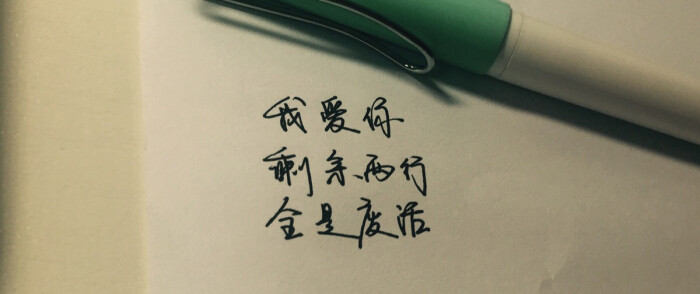 我爱你
剩余两行
全是废话